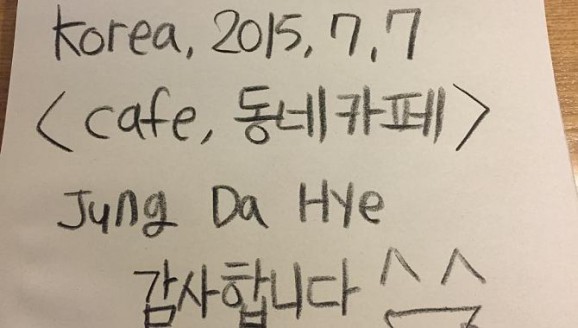 Korea, 2015, 7, 7
<cafe, 동네카페>
Jung Da Hye
감사합니다 ^_^